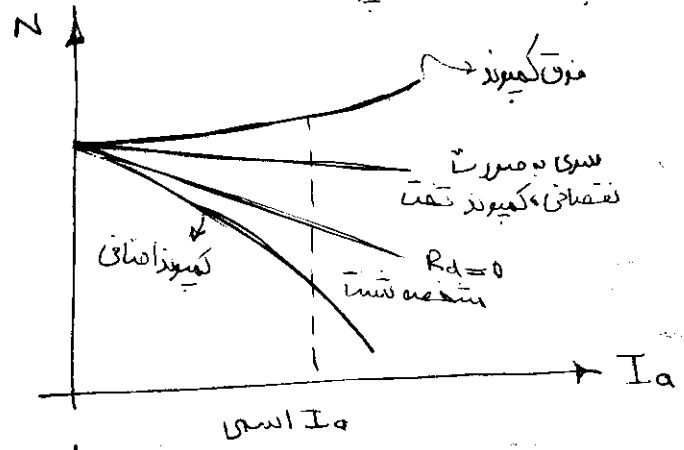 N
فوق کمپوند
سری به صورت
نقصانی، کمپوند تخت
Rd=0
مشخصه شنت
کمپوند اضافی
Ia
Ia اسمی